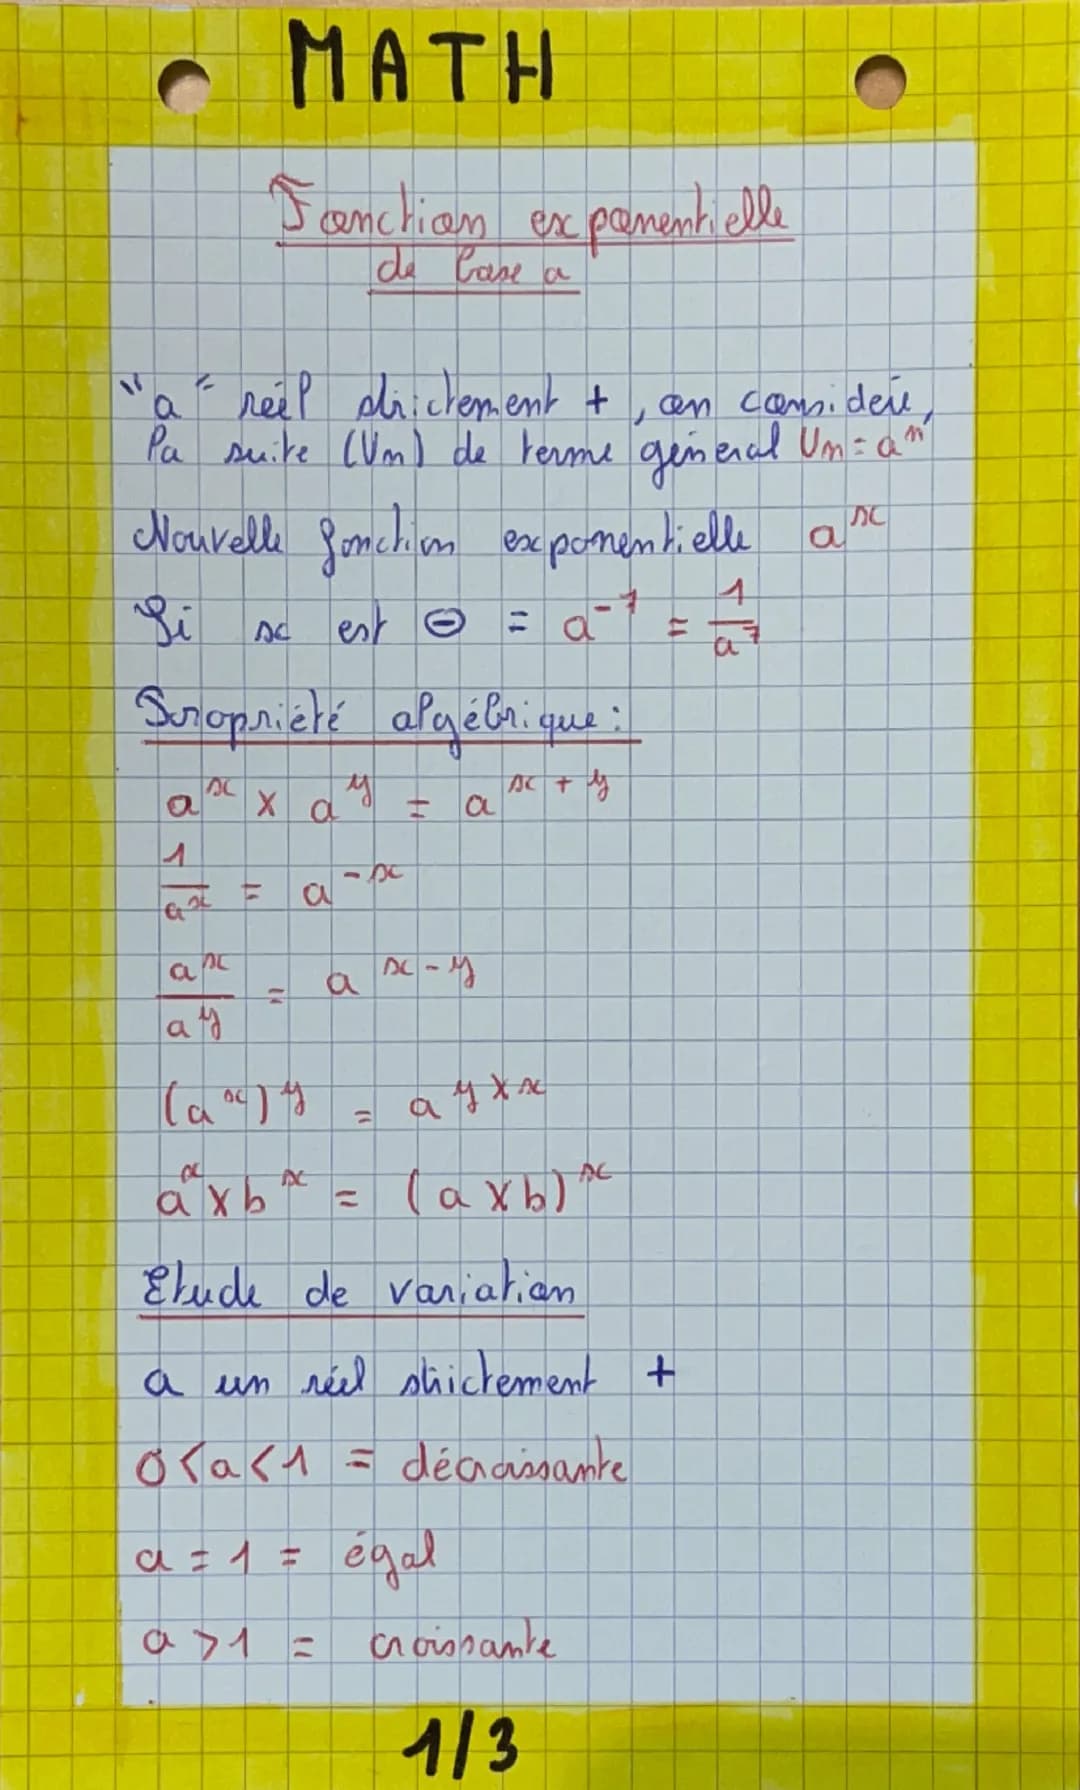 MATH
Fonction exponentielle
de base a
"a" réel strictement +, on considère,
la suite (Un) de terme général Un = aⁿ
Nouvelle fonction exponentielle aˣ
Si x est ⊖ = a⁻⁷ = 1/a⁷
Propriété algébrique :
aˣ × aʸ = aˣ⁺ʸ
1/aˣ = a⁻ˣ
aˣ/aʸ = aˣ⁻ʸ
(aˣ)ʸ = a^(y×x)
aˣ×bˣ = (a×b)ˣ
Etude de variation
a un réel strictement +
0<a<1 = décroissante
a = 1 = égal
a >1 = croissante
1/3